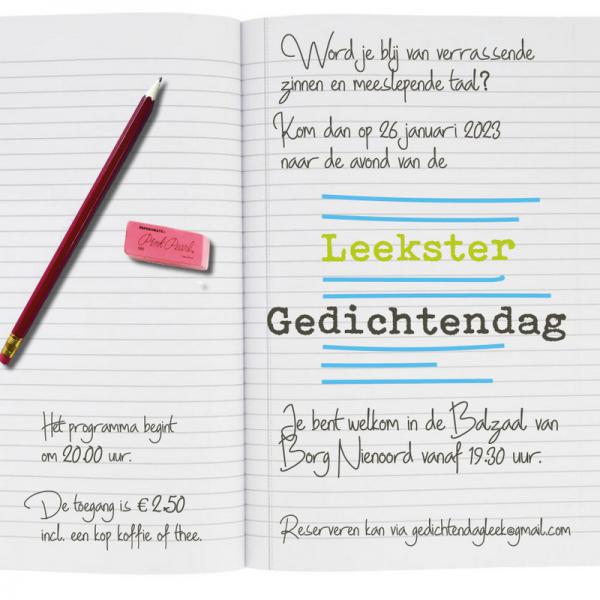 Word je blij van verrassende
zinnen en meeslepende taal?
Kom dan op 26 januari 2023
naar de avond van de
Leekster
Gedichtendag
Je bent welkom in de Balzaal van
Borg Nienoord vanaf 19.30 uur.
Reserveren kan via gedichtendagleek@gmail.com
Pink Pearl
Het programma begint
om 20.00 uur.
De toegang is € 2.50
incl. een kop koffie of thee.